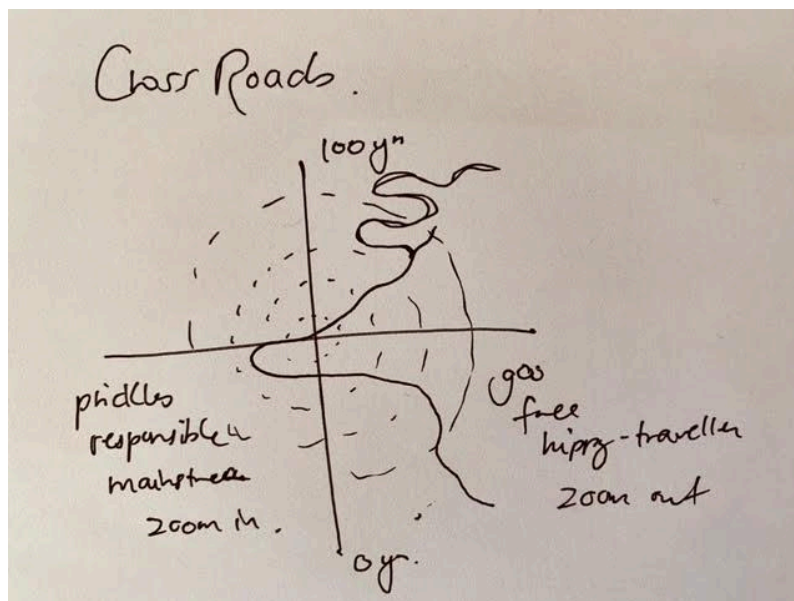 Cross Roads.
100 yr
responsible
mainstream
zoom in.
free
-traveller
zoom out
0 yr.